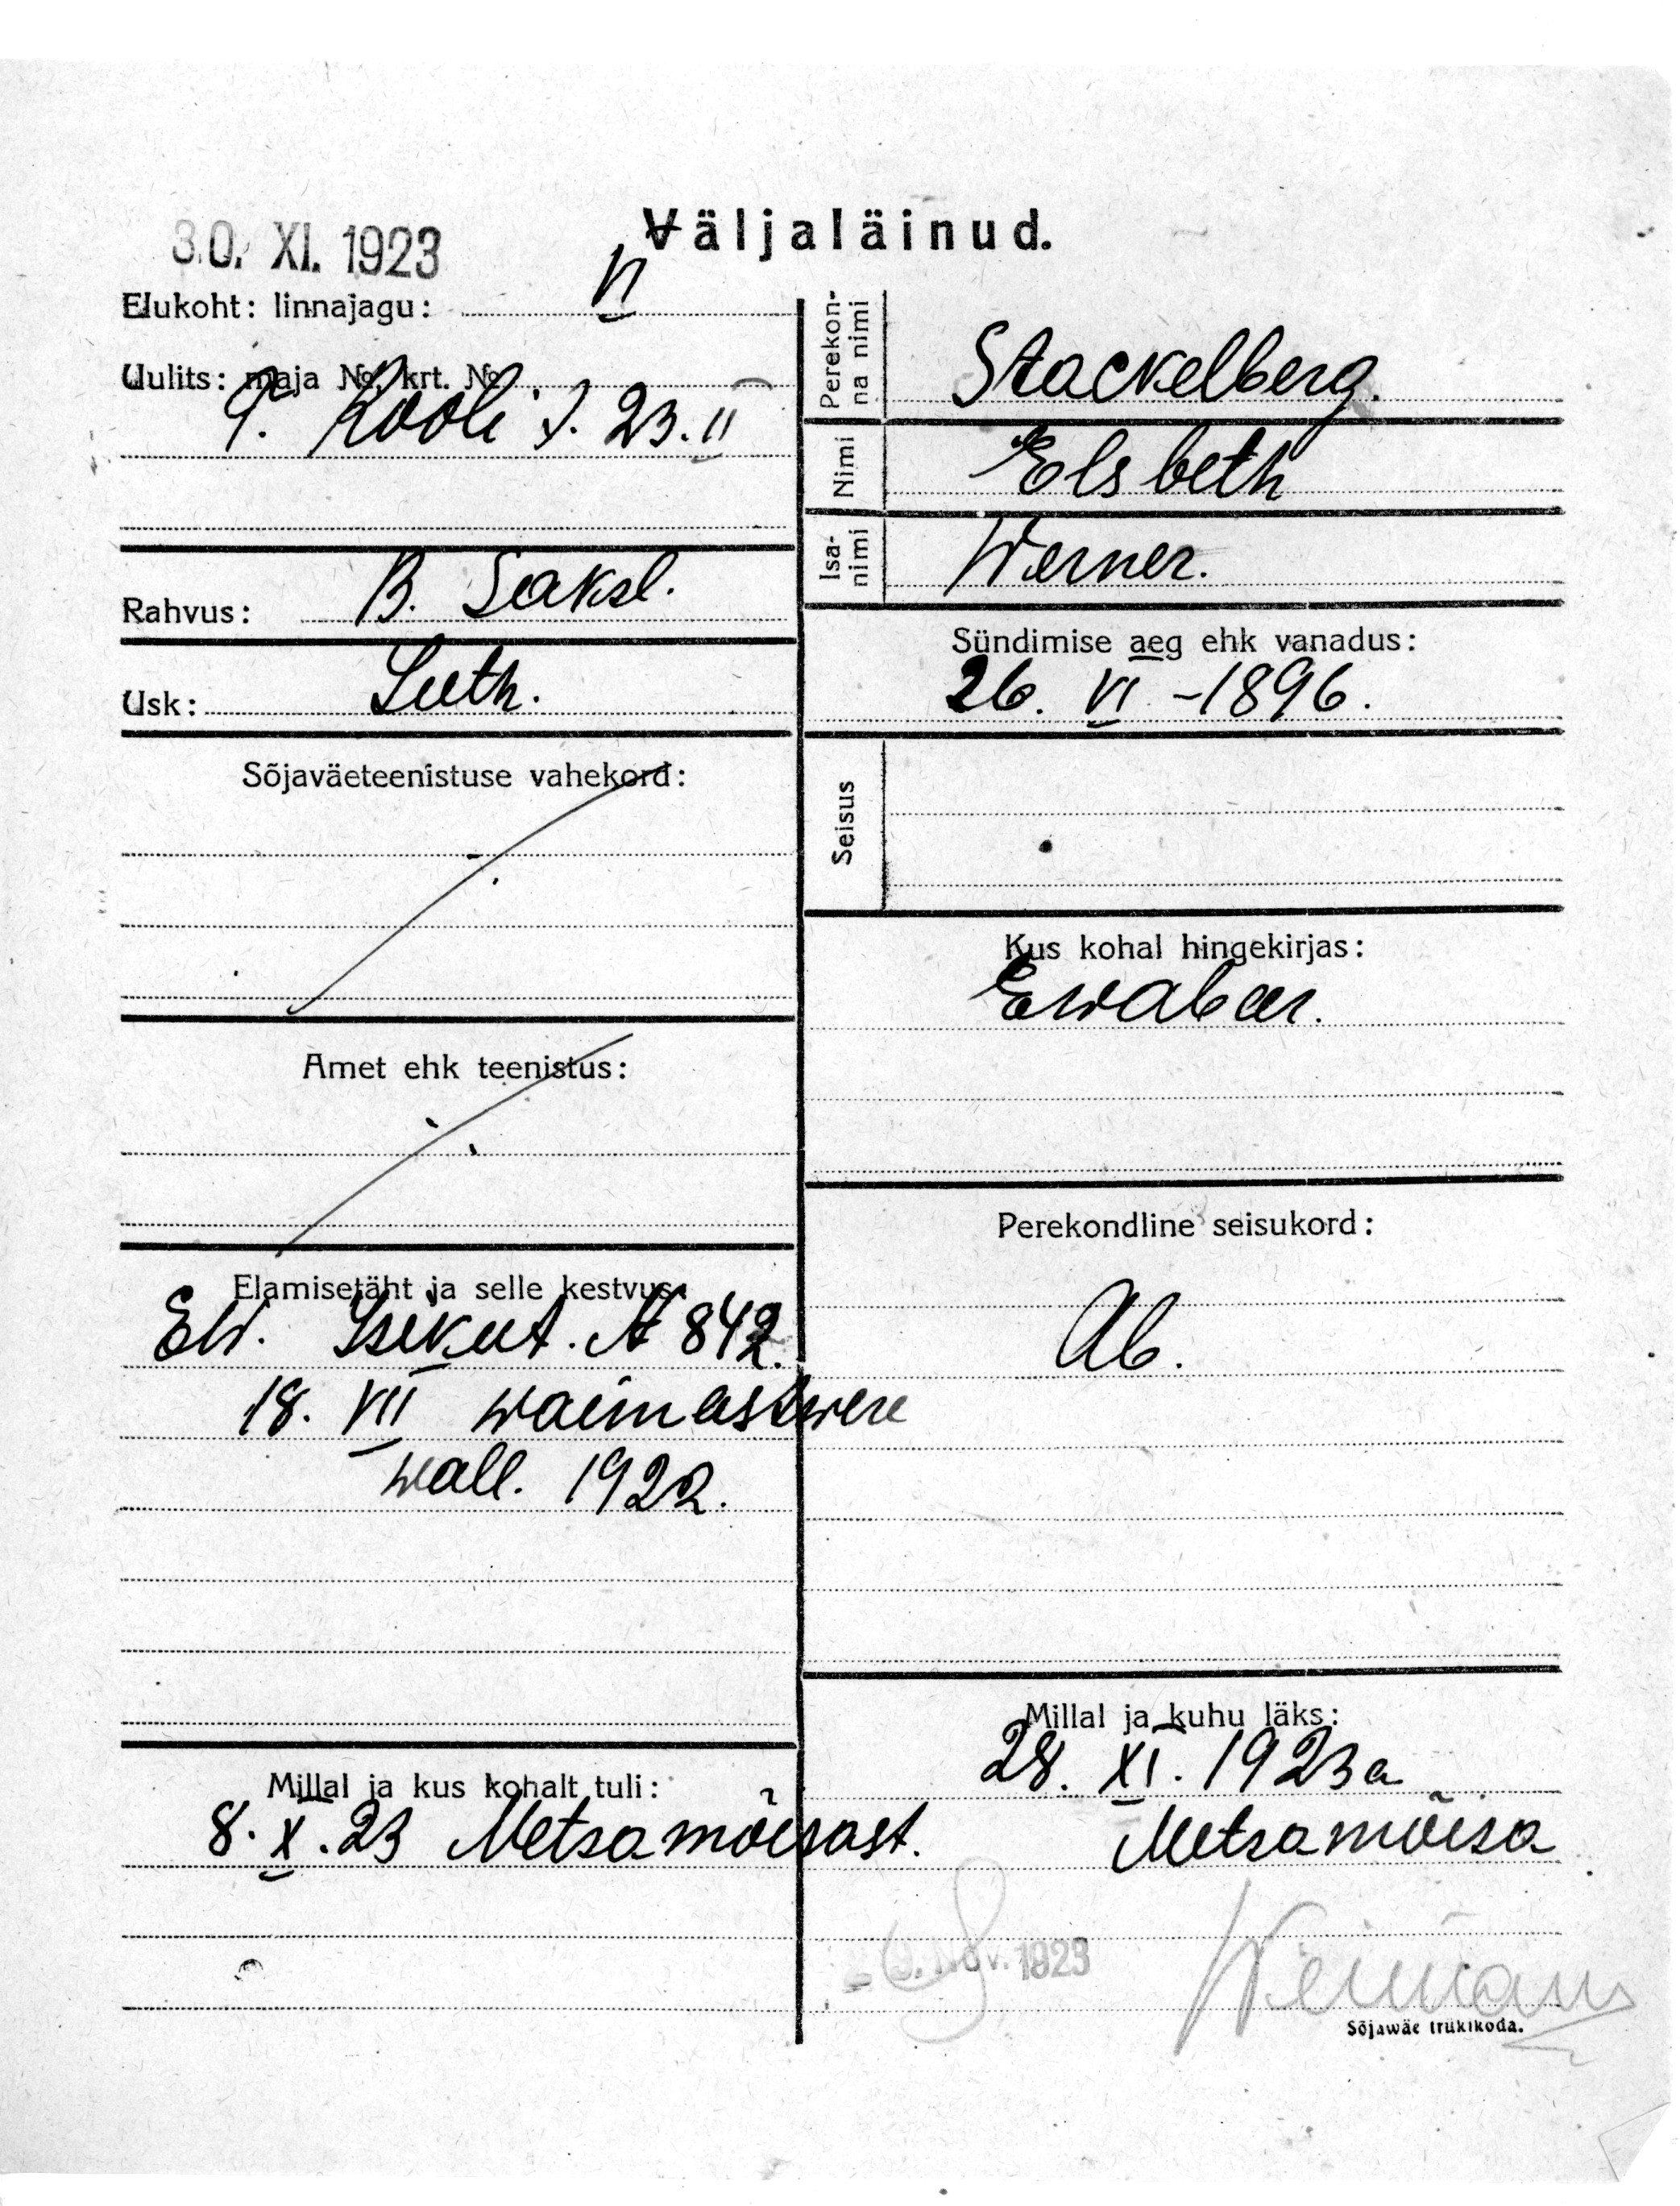 Väljaläinud.
30. XI. 1923
Elukoht: linnajagu: VI
Uulits: maja №, krt. №
Kooli t. 23. II
Rahvus: B. Saksl.
Usk: Luth.
Sõjaväeteenistuse vahekord:
Amet ehk teenistus:
Elamisetäht ja selle kestvus:
Ew. Isikut. № 842.
18. VII Waimastwere
wall. 1922.
Millal ja kus kohalt tuli:
8. X. 23 Metsamõisast.
Perekon-
na nimi
Stackelberg.
Nimi
Elsbeth
Isa-
nimi
Werner.
Sündimise aeg ehk vanadus:
26. VI - 1896.
Seisus
Kus kohal hingekirjas:
Perekondline seisukord:
Ab.
Millal ja kuhu läks:
28. XI. 1923 a
Metsamõisa
Nov. 1923
Sõjawäe trükikoda.